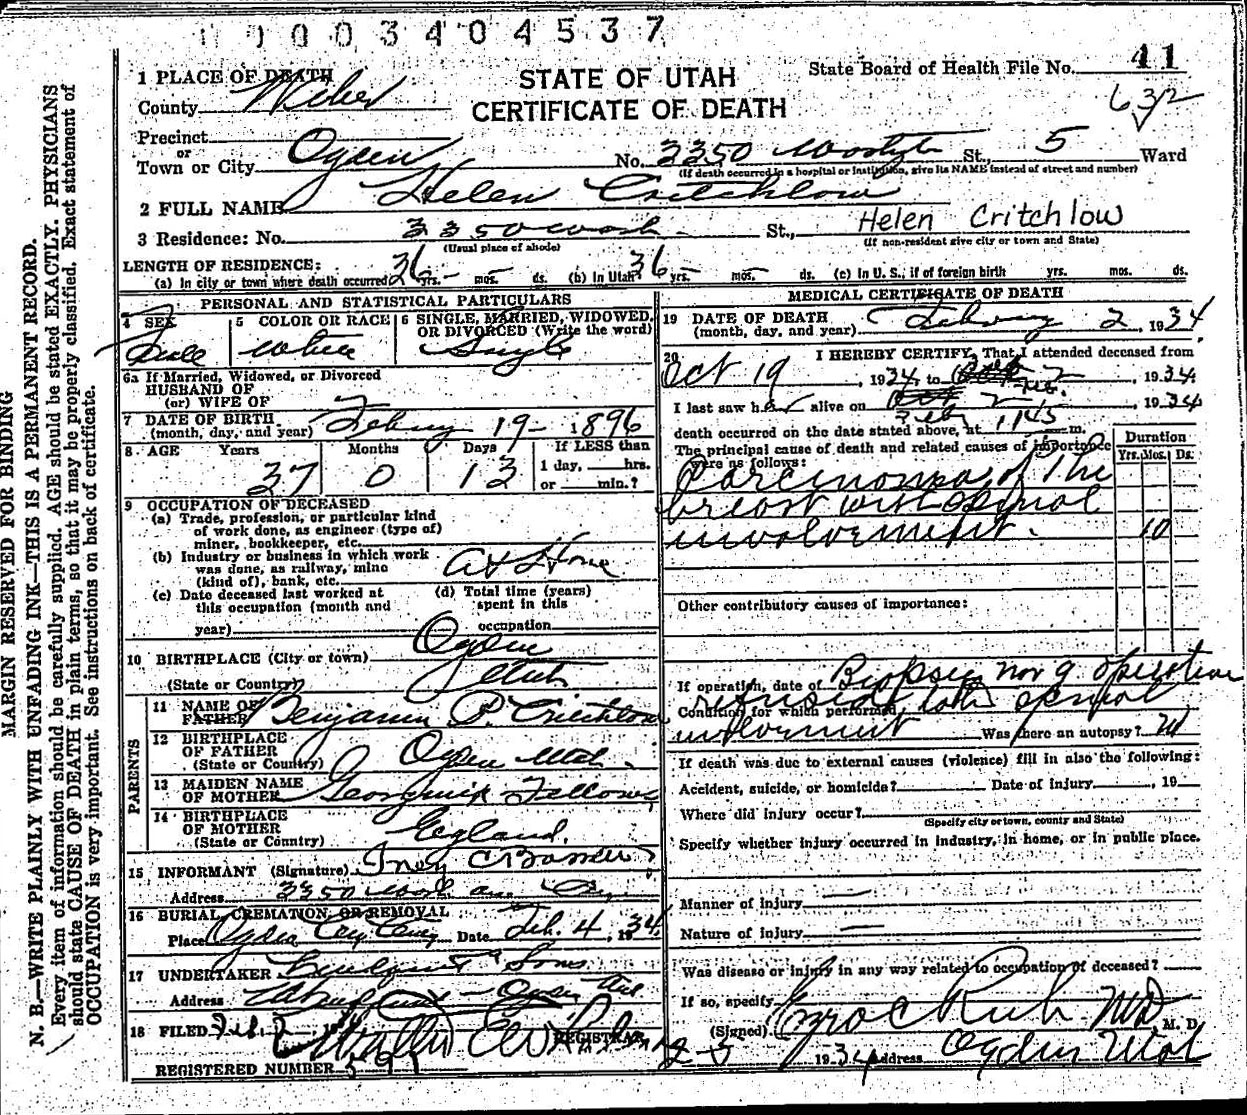 0 0 0 3 4 0 4 5 3 7
STATE OF UTAH
CERTIFICATE OF DEATH
State Board of Health File No. 41
632
1 PLACE OF DEATH
County Weber
Precinct
or
Town or City Ogden No. 3350 St., 5 Ward
(If death occurred in a hospital or institution, give its NAME instead of street and number)
2 FULL NAME Helen Critchlow
3 Residence: No. 3350 Wash. St., Helen Critchlow
(Usual place of abode) (If non-resident give city or town and State)
LENGTH OF RESIDENCE:
(a) In city or town where death occurred 36 yrs. - mos. - ds. (b) In Utah 36 yrs. mos. ds. (c) In U. S., if of foreign birth yrs. mos. ds.
PERSONAL AND STATISTICAL PARTICULARS
4 SEX 5 COLOR OR RACE 6 SINGLE, MARRIED, WIDOWED, OR DIVORCED (Write the word)
White Single
6a If Married, Widowed, or Divorced
HUSBAND OF
(or) WIFE OF
7 DATE OF BIRTH
(month, day, and year) 19 - 1896
8 AGE Years Months Days If LESS than
37 0 13 1 day, hrs.
or min.?
9 OCCUPATION OF DECEASED
(a) Trade, profession, or particular kind
of work done, as engineer (type of)
miner, bookkeeper, etc.
(b) Industry or business in which work
was done, as railway, mine
(kind of), bank, etc. At Home
(c) Date deceased last worked at
this occupation (month and
year)
(d) Total time (years)
spent in this
occupation
10 BIRTHPLACE (City or town) Ogden
(State or Country) Utah
PARENTS
11 NAME OF
FATHER Benjamin P. Critchlow
12 BIRTHPLACE
OF FATHER
(State or Country) Ogden Utah
13 MAIDEN NAME
OF MOTHER Fellows
14 BIRTHPLACE
OF MOTHER
(State or Country) England.
15 INFORMANT (Signature)
Address 3350 Wash ave
16 BURIAL, CREMATION, OR REMOVAL
Place Ogden City Date Feb. 4, 1934
17 UNDERTAKER & Sons
Address Ogden
18 FILED Feb. 2
REGISTRAR
REGISTERED NUMBER
MEDICAL CERTIFICATE OF DEATH
19 DATE OF DEATH
(month, day, and year) 2, 1934
20 I HEREBY CERTIFY, That I attended deceased from
Oct 19, 1934 to Feb. 2, 1934
I last saw her alive on Feb 2, 1934
death occurred on the date stated above, at 1145 m.
The principal cause of death and related causes of importance
were as follows: Duration
Yrs. Mos. Ds.
Carcinoma of the
breast with spinal
involvement. 10
Other contributory causes of importance:
If operation, date of Biopsy Nov 9 operative
Condition for which performed spinal
involvement Was there an autopsy?
If death was due to external causes (violence) fill in also the following:
Accident, suicide, or homicide? Date of injury , 19
Where did injury occur?
(Specify city or town, county and State)
Specify whether injury occurred in industry, in home, or in public place.
Manner of injury —
Nature of injury —
Was disease or injury in any way related to occupation of deceased?
If so, specify
(Signed) MD, M. D.
2 5 1934 Address Ogden Utah
MARGIN RESERVED FOR BINDING
N. B.—WRITE PLAINLY WITH UNFADING INK—THIS IS A PERMANENT RECORD.
Every item of information should be carefully supplied. AGE should be stated EXACTLY. PHYSICIANS
should state CAUSE OF DEATH in plain terms, so that it may be properly classified. Exact statement of
OCCUPATION is very important. See instructions on back of certificate.